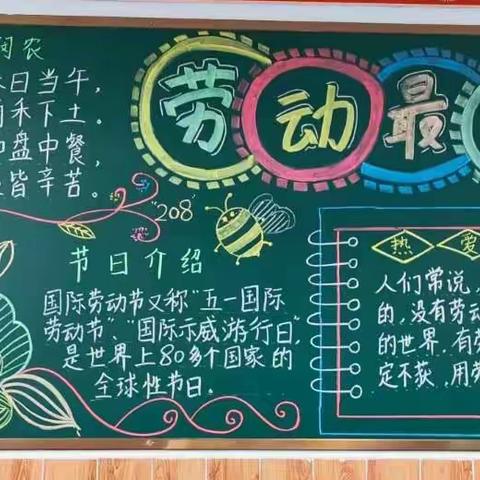 农
日当午，
禾下土。
盘中餐，
皆辛苦。
劳动最
"208"
节日介绍
国际劳动节又称"五一国际
劳动节"、"国际示威游行日，
是世界上80多个国家的
全球性节日。
热 爱
人们常说，
的，没有劳动
的世界，有劳
定不获，用劳